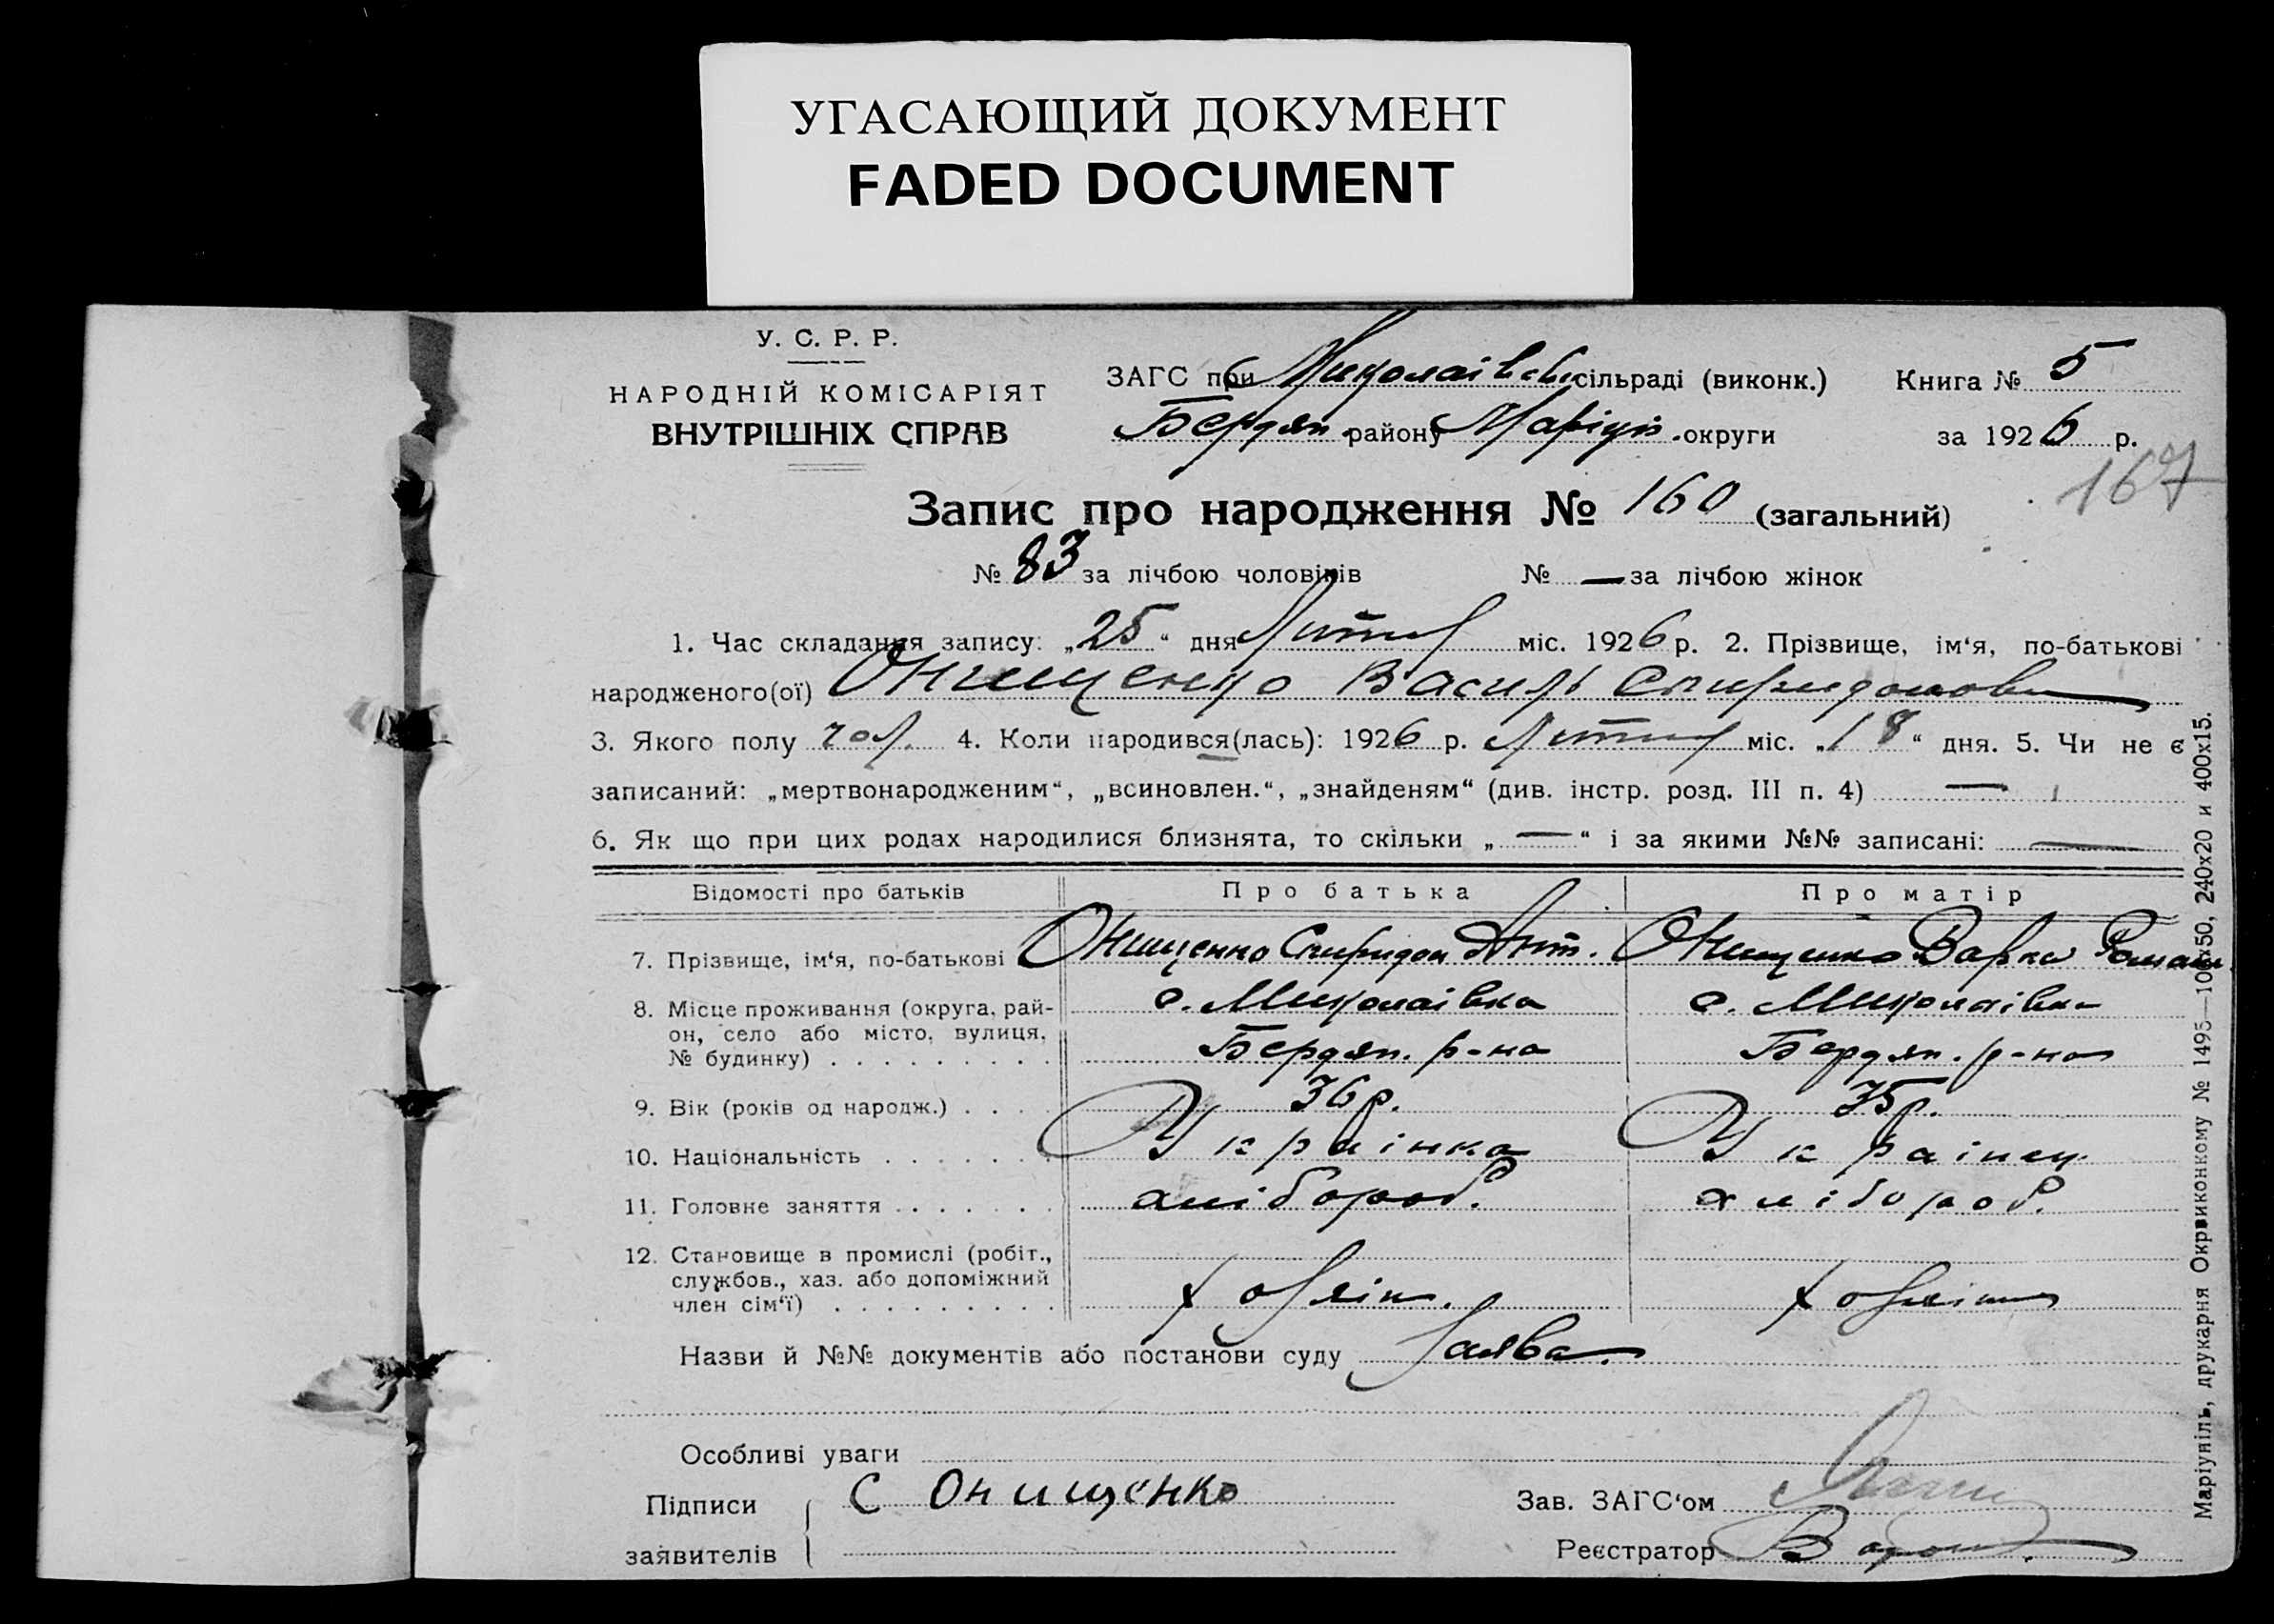 УГАСАЮЩИЙ ДОКУМЕНТ
FADED DOCUMENT
У. С. Р. Р.
НАРОДНІЙ КОМІСАРІЯТ
ВНУТРІШНІХ СПРАВ
ЗАГС при Миколаівськ. сільраді (виконк.) Книга № 5
Бердян. району Маріуп. округи за 1926 р.
167
Запис про народження № 160 (загальний)
№ 83 за лічбою чоловіків № — за лічбою жінок
1. Час складання запису: „25“ дня Лютий міс. 1926 р. 2. Прізвище, ім‘я, по-батькові
народженого(ої) Онищенко Василь Спиридонови
3. Якого полу чол. 4. Коли народився(лась): 1926 р. Лютий міс. „18“ дня. 5. Чи не є
записаний: „мертвонародженим“, „всиновлен.“, „знайденям“ (див. інстр. розд. III п. 4) —
6. Як що при цих родах народилися близнята, то скільки „—“ і за якими №№ записані: —
Відомості про батьків Про батька Про матір
7. Прізвище, ім‘я, по-батькові Онищенко Спиридон Ант. Онищенко Варка Роман
8. Місце проживання (округа, рай- с. Миколаівка с. Миколаівка
он, село або місто, вулиця,
№ будинку) . . . . . . . . . Бердян. р-на Бердян. р-на
9. Вік (років од народж.) . . . . 36 р. 35 р.
10. Національність . . . . . . . Украінка Украінец
11. Головне заняття . . . . . . . хлібороб. хлібороб.
12. Становище в промислі (робіт.,
службов., хаз. або допоміжний
член сім‘ї) . . . . . . . . .
Назви й №№ документів або постанови суду Заява.
Особливі уваги
Підписи С Онищенко Зав. ЗАГС‘ом
заявителів Реєстратор
Маріупіль, друкарня Окрвиконкому № 1495—100х50, 240х20 и 400х15.